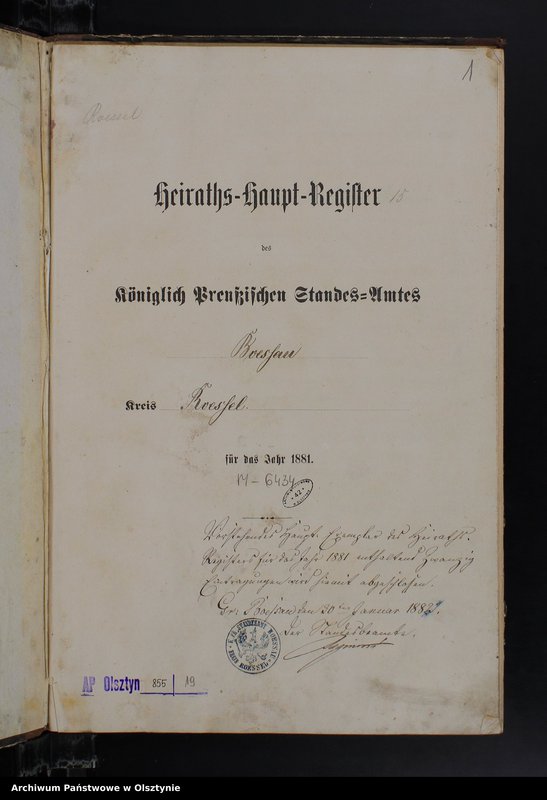 1
Roessel
Heiraths-Haupt-Register 15
des
Königlich Preußischen Standes-Amtes
Boessau
Kreis Roessel.
für das Jahr 1881.
M-6434
42
Vorstehendes Haupt-Exemplar des Heiraths-
Registers für das Jahr 1881 enthaltend zwanzig
Eintragungen wird hiermit abgeschlossen.
Gr. Boessau den 30ten Januar 1882.
Der Standesbeamte.
AP Olsztyn 855 19
Archiwum Państwowe w Olsztynie